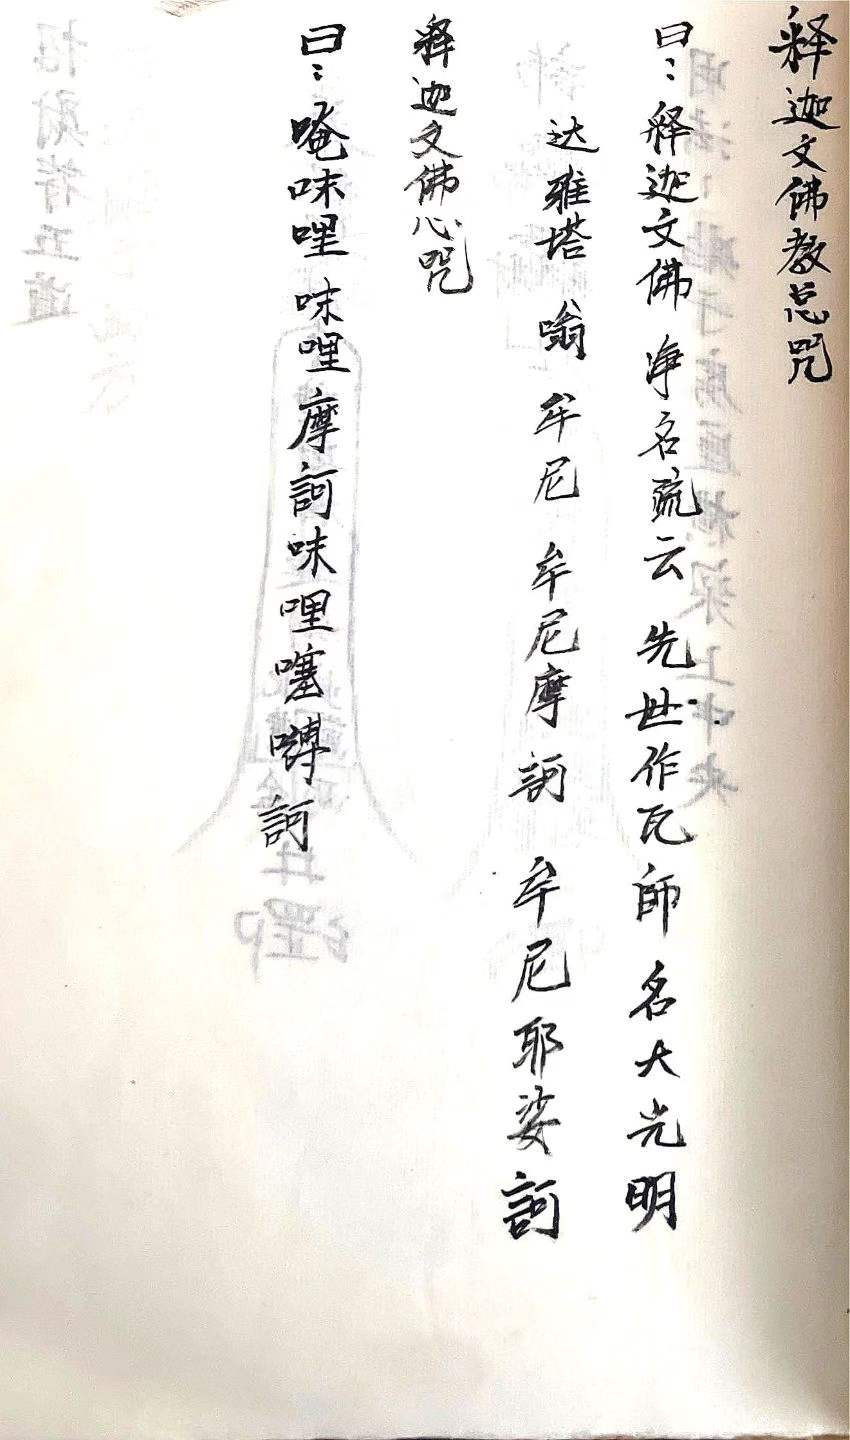 释迦文佛教总咒
曰：释迦文佛 净名疏云 先世作瓦師 名大光明
达雅塔 嗡 牟尼 牟尼摩 訶 牟尼耶娑訶
释迦文佛心咒
曰：唵味哩 味哩摩訶味哩噻嚩訶
招财符五道